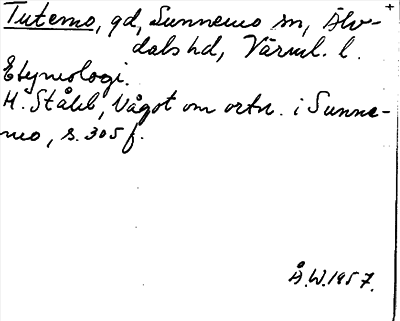 Tutemo, gd, Sunnemo sn, Älv-
dals hd, Värml. l.
Etymologi.
H. Ståhl, Något om ortn. i Sunne-
mo, s. 305 f.
Å.W. 1957.